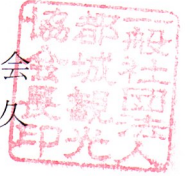 一般社団法人
都城觀光
協會長印
会久